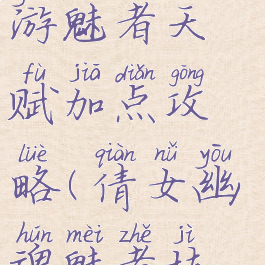 游魅者天
fù jiā diǎn gōng
赋加点攻
lüè qiàn nǚ yōu
略(倩女幽
hún mèi zhě jì
魂魅者技